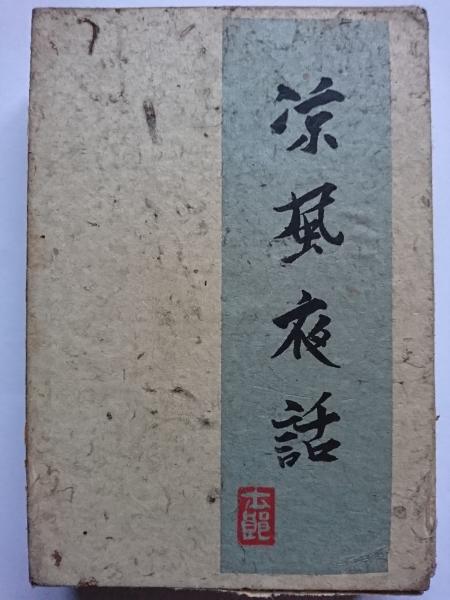 涼風夜話